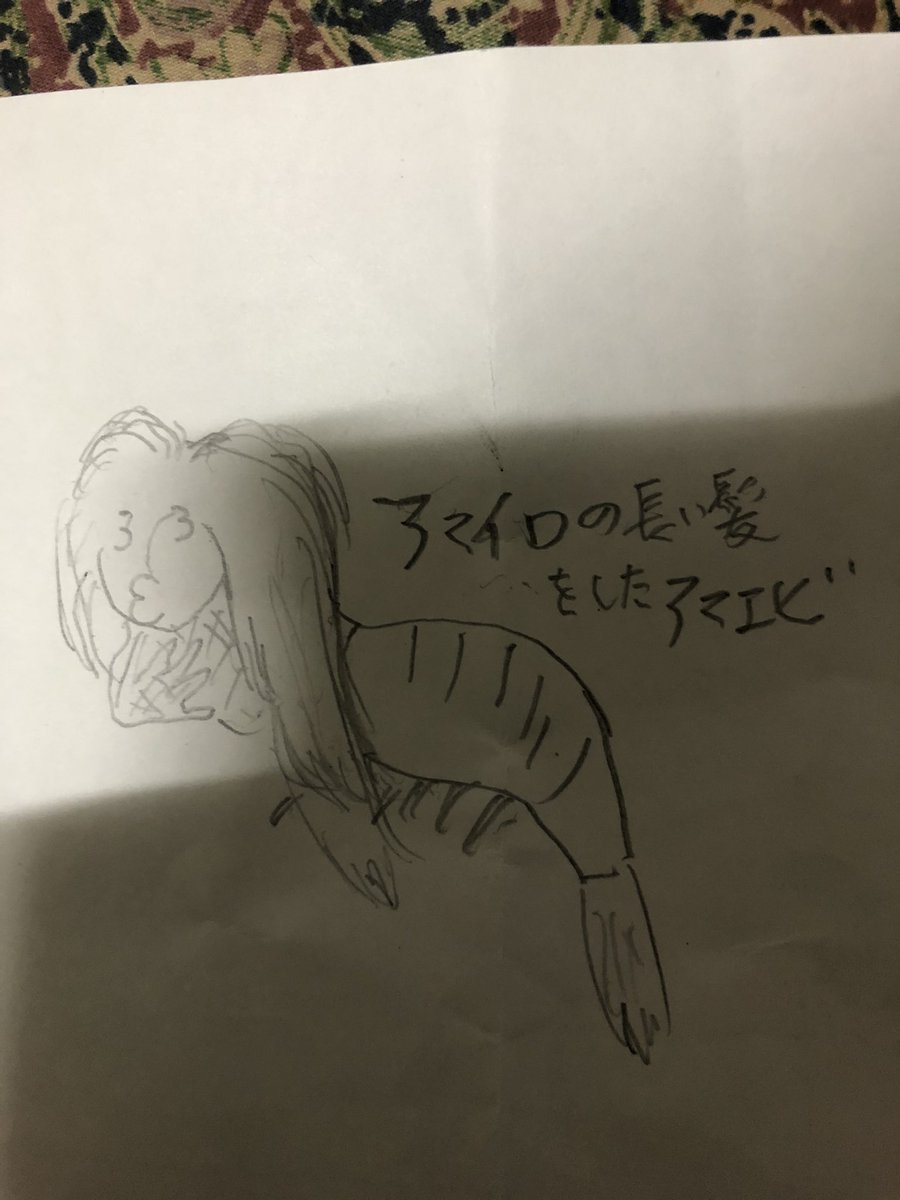 アマイロの長い髪
をしたアマエビ